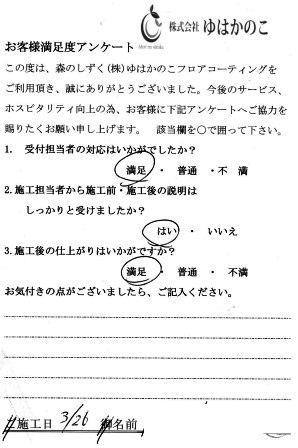 株式会社 ゆはかのこ
お客様満足度アンケート
この度は、森のしずく(株)ゆはかのこフロアコーティングを
ご利用頂き、誠にありがとうございました。今後のサービス、
ホスピタリティ向上の為、お客様に下記アンケートへご協力を
賜りたくお願い申し上げます。 該当欄を〇で囲って下さい。
1. 受付担当者の対応はいかがでしたか？
満足 ・ 普通 ・ 不 満
2. 施工担当者から施工前・施工後の説明は
しっかりと受けましたか？
はい ・ いいえ
3. 施工後の仕上がりはいかがですか？
満足 ・ 普通 ・ 不満
お気付きの点がございましたら、ご記入ください。
施工日 3/26 御名前